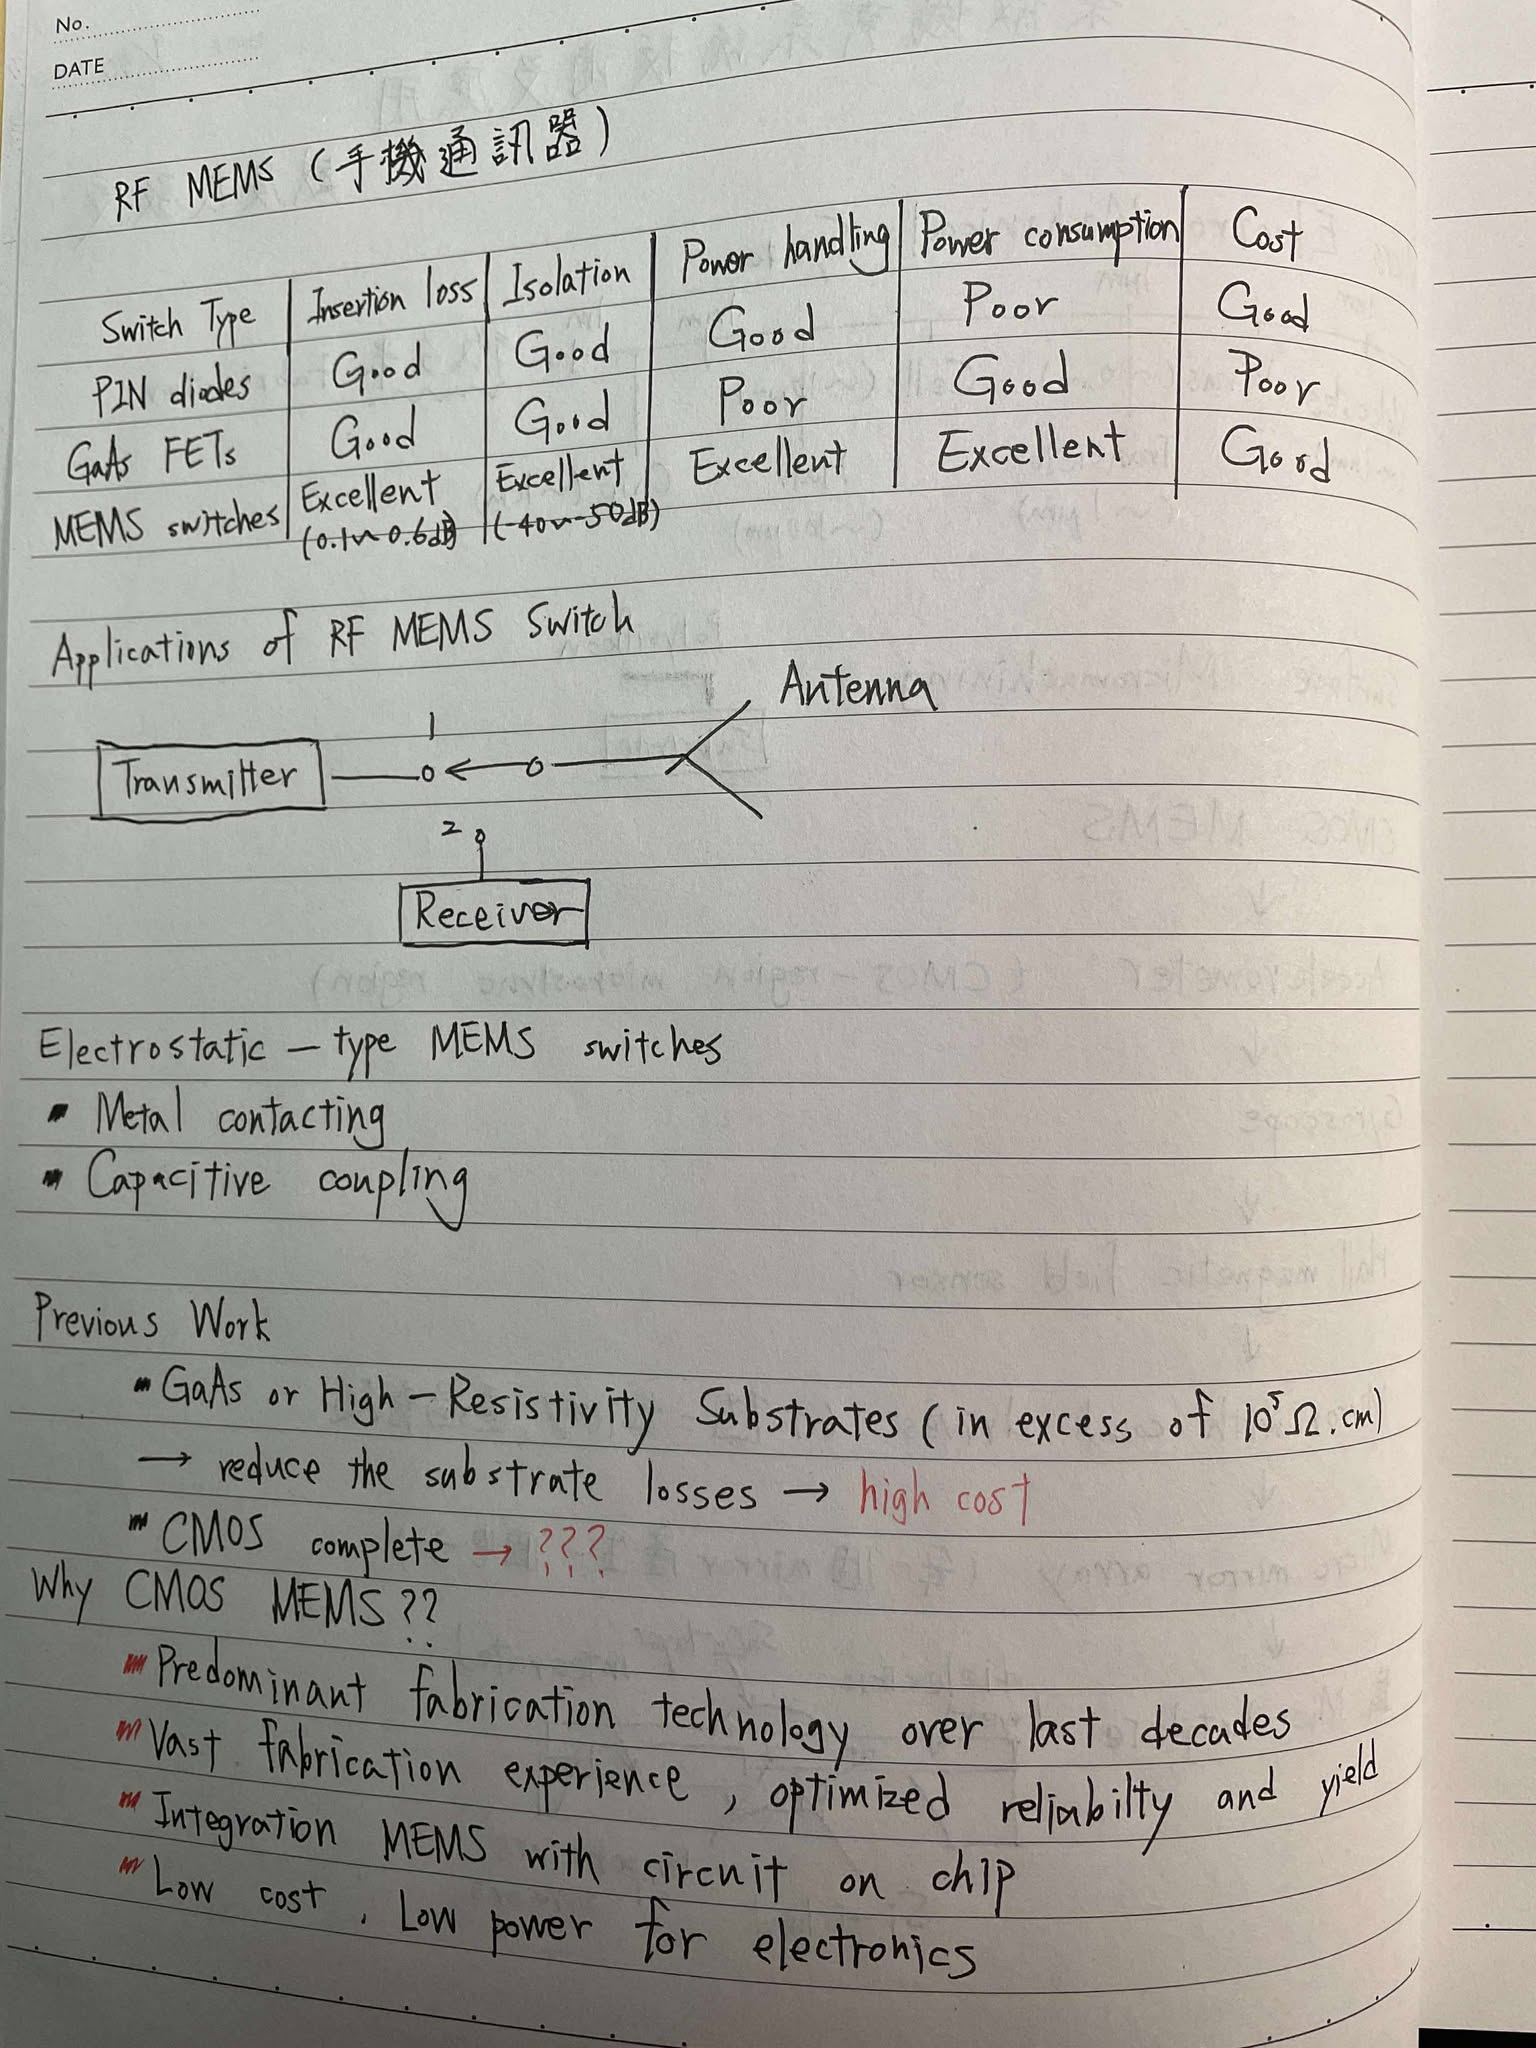 No.
DATE
RF MEMS (手機通訊器)
Switch Type | Insertion loss | Isolation | Power handling | Power consumption | Cost
PIN diodes | Good | Good | Good | Poor | Good
GaAs FETs | Good | Good | Poor | Good | Poor
MEMS switches | Excellent (0.1~0.6dB) | Excellent (-40~-50dB) | Excellent | Excellent | Good
Applications of RF MEMS Switch
Antenna
1
Transmitter
2
Receiver
Electrostatic-type MEMS switches
▪ Metal contacting
▪ Capacitive coupling
Previous Work
▪ GaAs or High-Resistivity Substrates (in excess of 10⁵Ω.cm)
→ reduce the substrate losses → high cost
▪ CMOS complete → ???
Why CMOS MEMS??
▪ Predominant fabrication technology over last decades
▪ Vast fabrication experience, optimized reliabilty and yield
▪ Integration MEMS with circuit on chip
▪ Low cost, Low power for electronics